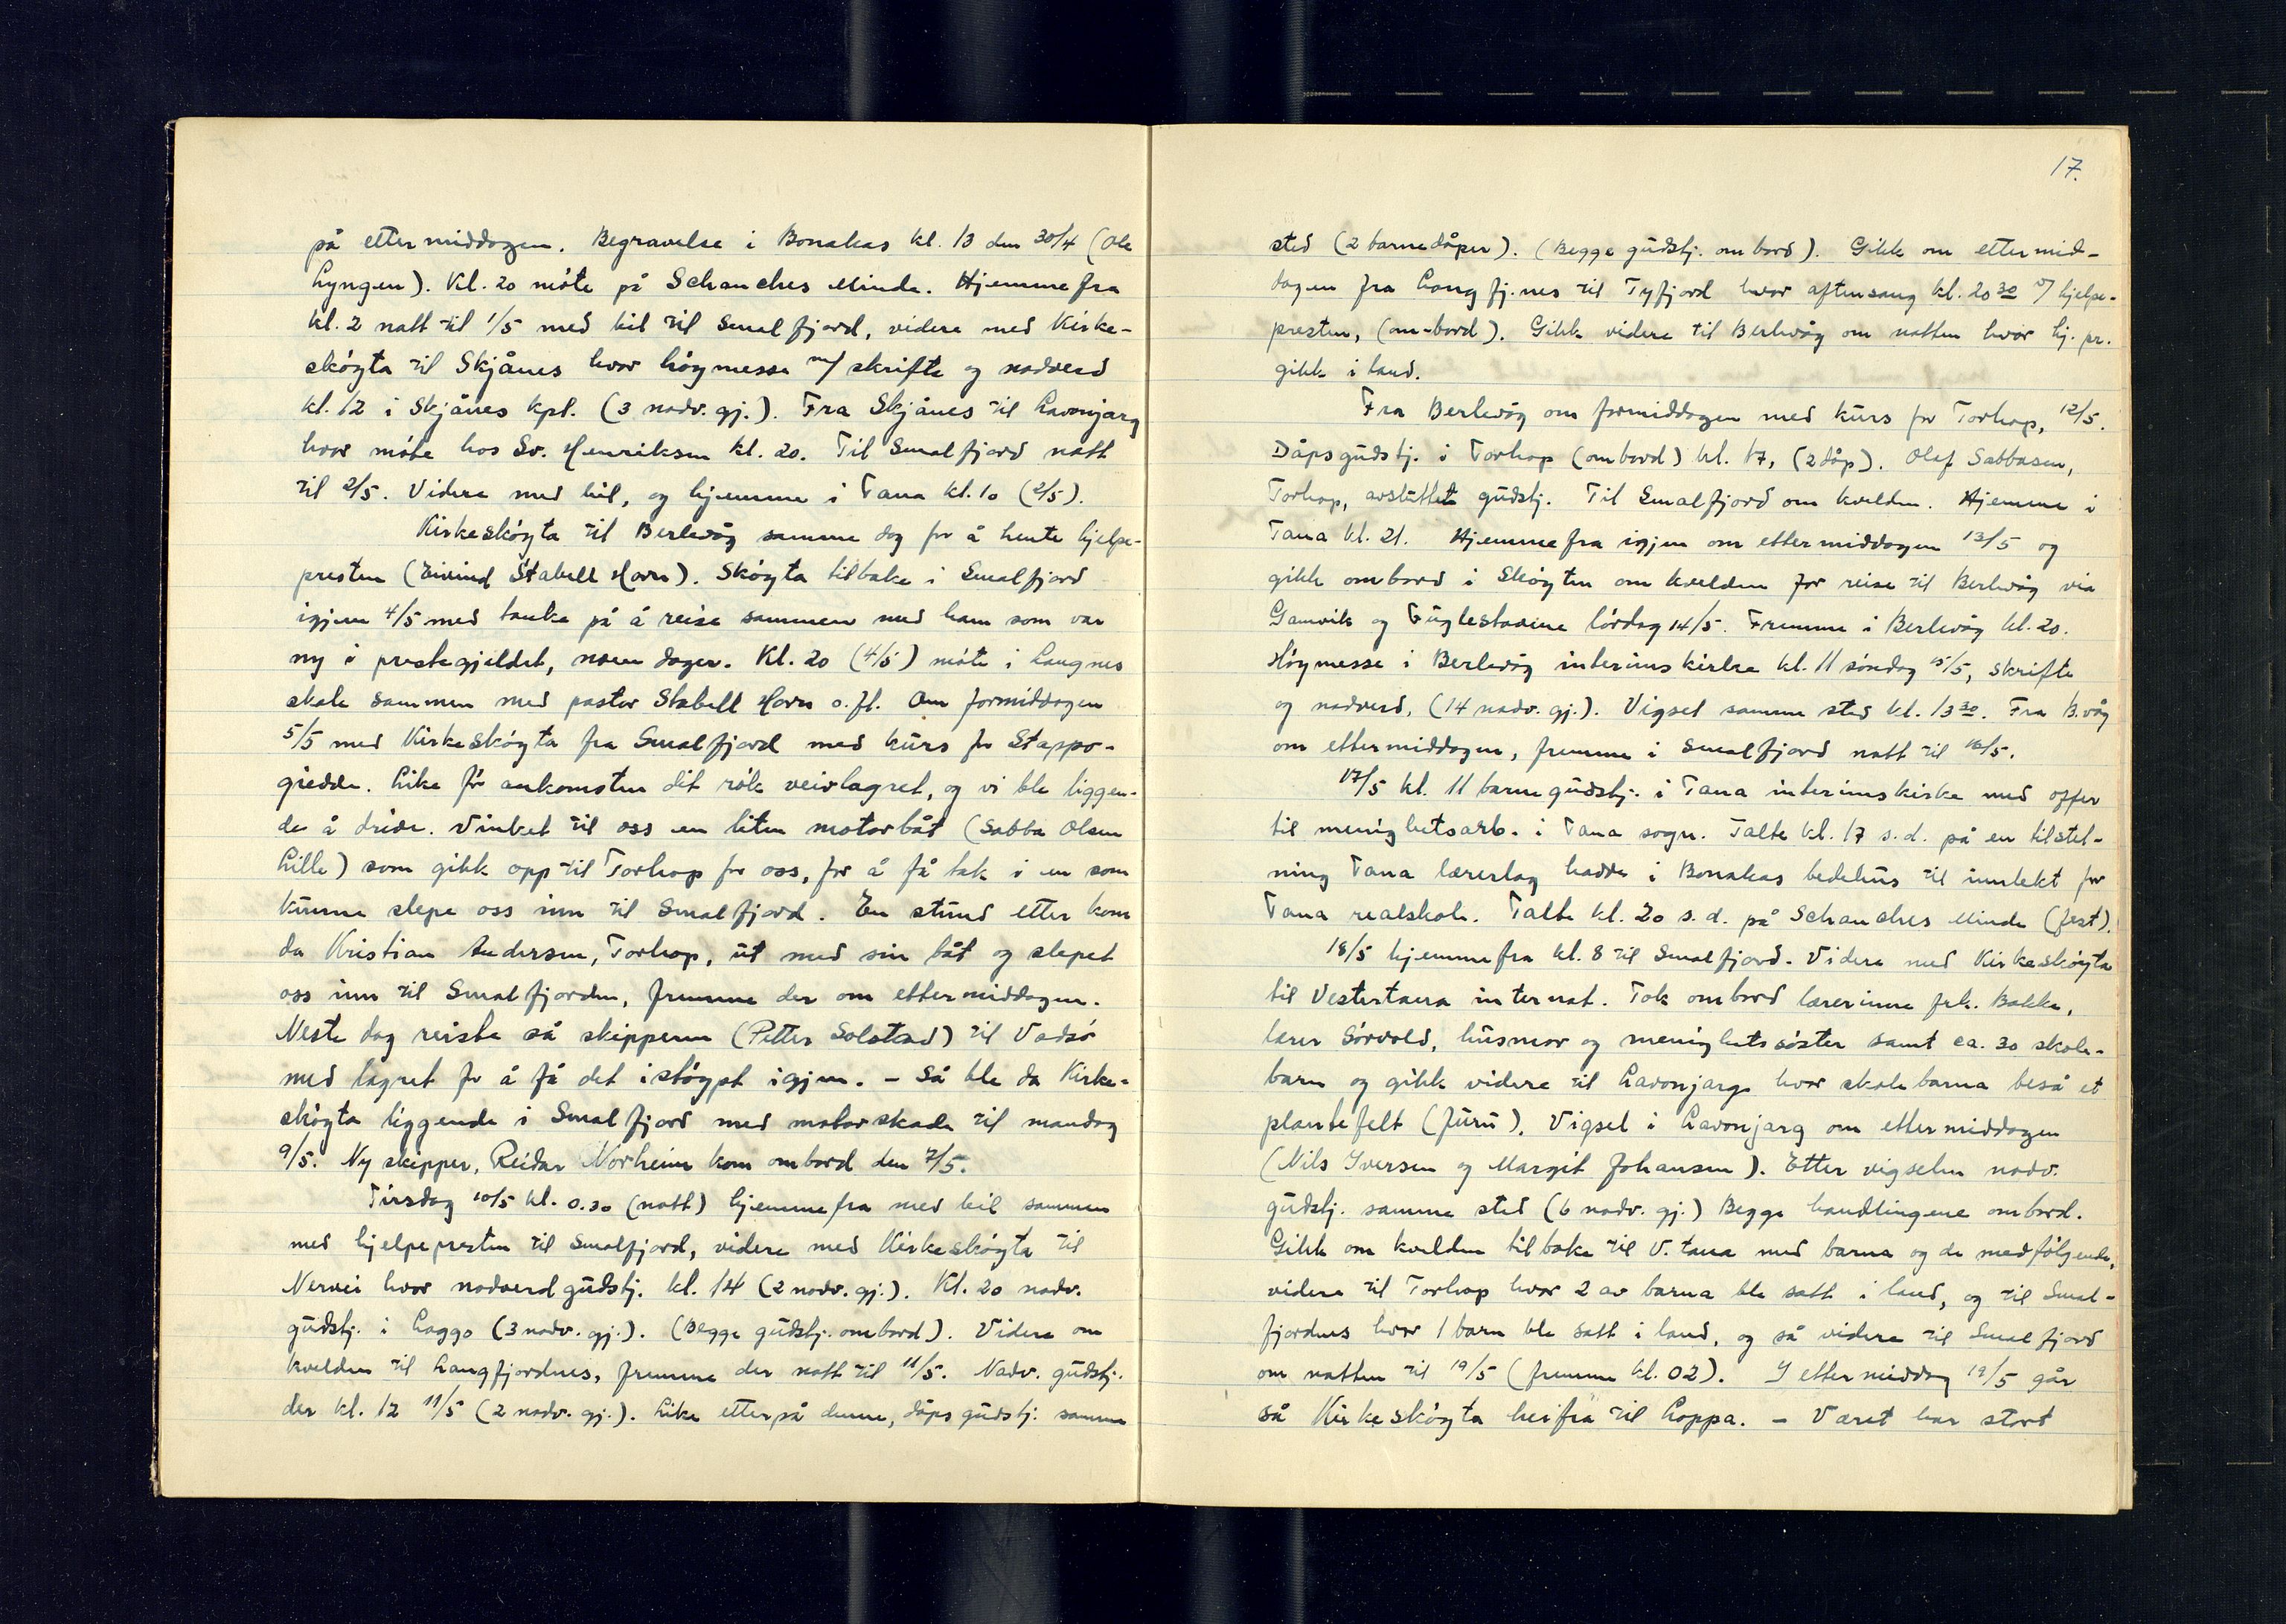 på ettermiddagen. Begravelse i Bonakas kl. 13 den 30/4 (Ole
Lyngen). Kl. 20 møte på Schanches Minde. Hjemmefra
kl. 2 natt til 1/5 med bil til Smalfjord, videre med Kirke-
skøyta til Skjånes hvor høymesse m/ skrifte og nadverd
kl. 12 i Skjånes kpl. (3 nadv. gj.). Fra Skjånes til Lavonjarg
hvor møte hos Sv. Henriksen kl. 20. Til Smalfjord natt
til 2/5. Videre med bil, og hjemme i Tana kl. 10 (2/5).
Kirkeskøyta til Berlevåg samme dag for å hente hjelpe-
presten (Eivind Stabell Horn). Skøyta tilbake i Smalfjord
igjen 4/5 med tanke på å reise sammen med ham som var
ny i prestegjeldet, noen dager. Kl. 20 (4/5) møte i Langnes
skole sammen med pastor Stabell Horn o. fl. Om formiddagen
5/5 med Kirkeskøyta fra Smalfjord med kurs for Stappo-
giedde. Like før ankomsten dit røk veivlagret, og vi ble liggen-
de å drive. Vinket til oss en liten motorbåt (Sabba Olsen
Lille) som gikk opp til Torhop for oss, for å få tak i en som
kunne slepe oss inn til Smalfjord. En stund etter kom
da Kristian Andersen, Torhop, ut med sin båt og slepet
oss inn til Smalfjorden, fremme der om ettermiddagen.
Neste dag reiste så skipperen (Petter Solstad) til Vadsø
med lagret for å få det istøypt igjen. – Så ble da Kirke-
skøyta liggende i Smalfjord med motorskade til mandag
9/5. Ny skipper, Reidar Norheim kom ombord den 7/5.
Tirsdag 10/5 kl. 0.30 (natt) hjemmefra med bil sammen
med hjelpepresten til Smalfjord, videre med Kirkeskøyta til
Nervei hvor nadverdgudstj. kl. 14 (2 nadv. gj.). Kl. 20 nadv.
gudstj. i Laggo (3 nadv. gj.). (Begge gudstj. ombord). Videre om
kvelden til Langfjordnes, fremme der natt til 11/5. Nadv. gudstj.
der kl. 12 11/5 (2 nadv. gj.). Like etterpå denne, dåpsgudstj. samme
17.
sted (2 barnedåper). (Begge gudstj. ombord). Gikk om ettermid-
dagen fra Langfj.nes til Tyfjord hvor aftensang kl. 20 30 v/ hjelpe-
presten, (om-bord). Gikk videre til Berlevåg om natten hvor hj. pr.
gikk i land.
Fra Berlevåg om formiddagen med kurs for Torhop, 12/5.
Dåpsgudstj. i Torhop (ombord) kl. 17, (2 dåp). Olaf Sabbasen,
Torhop, avsluttet gudstj. Til Smalfjord om kvelden. Hjemme i
Tana kl. 21. Hjemmefra igjen om ettermiddagen 13/5 og
gikk ombord i Skøyten om kvelden for reise til Berlevåg via
Gamvik og Fuglestadene lørdag 14/5. Fremme i Berlevåg kl. 20.
Høymesse i Berlevåg interimskirke kl. 11 søndag 15/5, skrifte
og nadverd, (14 nadv. gj.). Vigsel samme sted kl. 13 30. Fra B.våg
om ettermiddagen, fremme i Smalfjord natt til 16/5.
17/5 kl. 11 barnegudstj. i Tana interimskirke med offer
til menighetsarb. i Tana sogn. Talte kl. 17 s.d. på en tilstel-
ning Tana lærerlag hadde i Bonakas bedehus til inntekt for
Tana realskole. Talte kl. 20 s.d. på Schanches Minde (fest).
18/5 hjemmefra kl. 8 til Smalfjord. Videre med Kirkeskøyta
til Vestertana internat. Tok ombord lærerinne frk. Bakke,
lærer Sørvold, husmor og menighetssøster samt ca. 30 skole-
barn og gikk videre til Lavonjarga hvor skolebarna beså et
plantefelt (furu). Vigsel i Lavonjarg om ettermiddagen
(Nils Iversen og Margit Johansen). Etter vigselen nadv.
gudstj. samme sted (6 nadv. gj.) Begge handlingene ombord.
Gikk om kvelden tilbake til V. tana med barna og de medfølgende,
videre til Torhop hvor 2 av barna ble satt i land, og til Smal-
fjordnes hvor 1 barn ble satt i land, og så videre til Smalfjord
om natten til 19/5 (fremme kl. 02). I ettermiddag 19/5 går
så Kirkeskøyta herfra til Loppa. – Været har stort